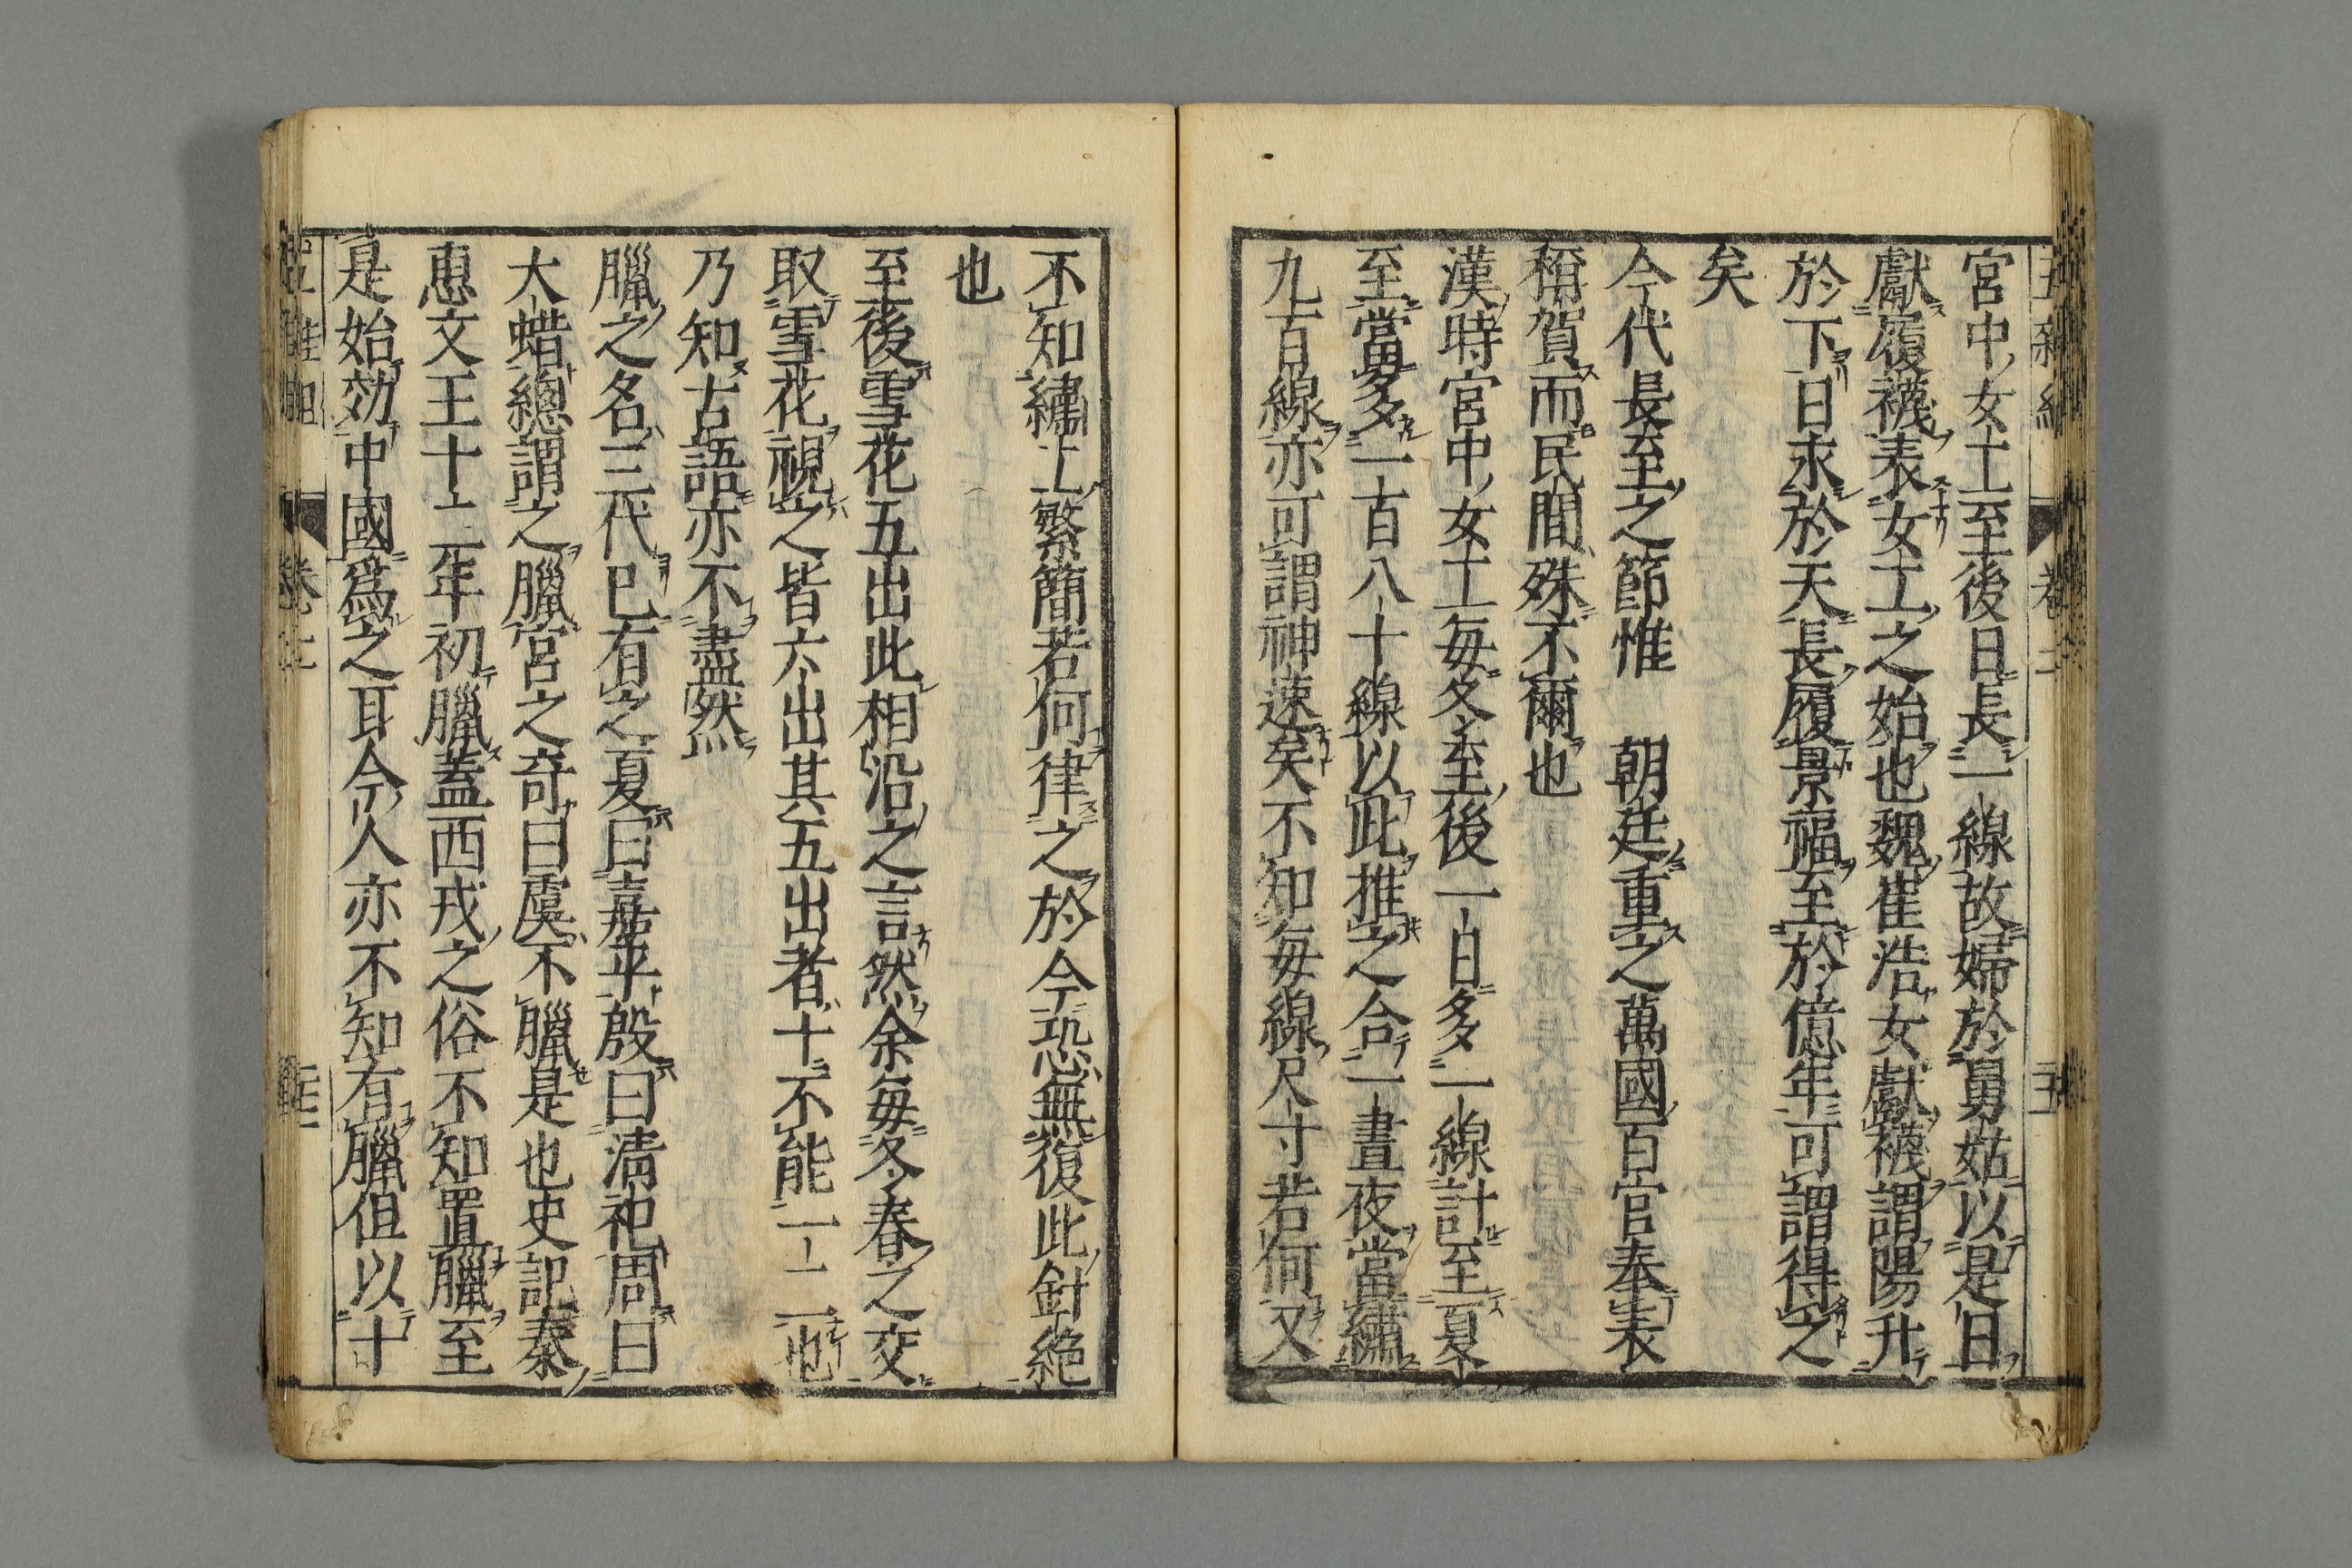 宮中女工至後日長一線故婦於舅姑以是日
獻履襪表女工之始也魏崔浩女獻襪謂陽升
於下日永於天長履景福至於億年可謂得之
矣
今代長至之節惟　朝廷重之萬國百官奉表
稱賀而民間殊不爾也
漢時宮中女工每冬至後一日多一線計至夏
至當多一百八十線以此推之合一晝夜當繡
九百線亦可謂神速矣不知每線尺寸若何又
不知繡工繁簡若何律之於今恐無復此針絕
也
至後雪花五出此相沿之言然余每冬春之交
取雪花視之皆六出其五出者十不能一二也
乃知古語亦不盡然
臘之名三代已有之夏曰嘉平殷曰清祀周曰
大蜡總謂之臘宮之奇曰虞不臘是也史記秦
惠文王十二年初臘蓋西戎之俗不知置臘至
是始効中國爲之耳今人亦不知有臘但以十